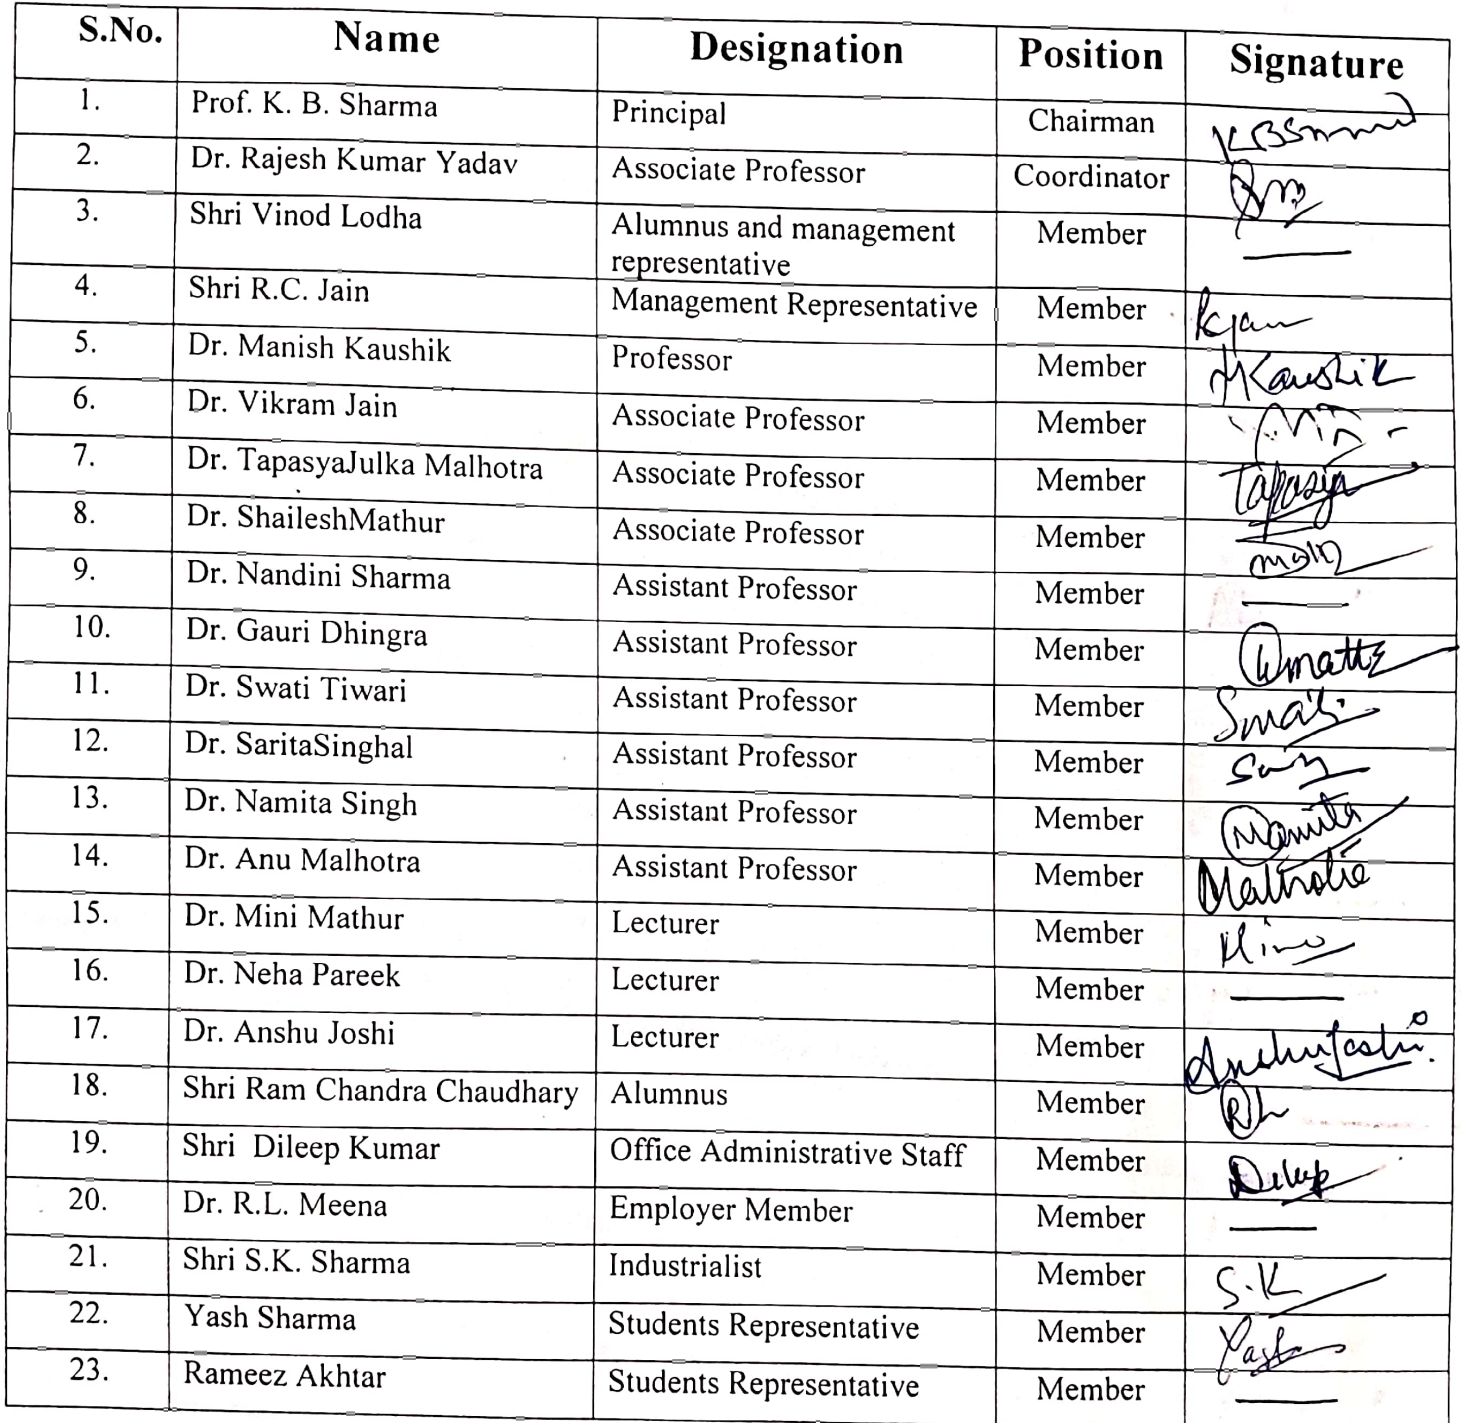 S.No. Name Designation Position Signature
1. Prof. K. B. Sharma Principal Chairman
2. Dr. Rajesh Kumar Yadav Associate Professor Coordinator
3. Shri Vinod Lodha Alumnus and management Member
representative
4. Shri R.C. Jain Management Representative Member
5. Dr. Manish Kaushik Professor Member Kaushik
6. Dr. Vikram Jain Associate Professor Member
7. Dr. TapasyaJulka Malhotra Associate Professor Member Tapasya
8. Dr. ShaileshMathur Associate Professor Member
9. Dr. Nandini Sharma Assistant Professor Member
10. Dr. Gauri Dhingra Assistant Professor Member
11. Dr. Swati Tiwari Assistant Professor Member
12. Dr. SaritaSinghal Assistant Professor Member
13. Dr. Namita Singh Assistant Professor Member Namita
14. Dr. Anu Malhotra Assistant Professor Member
15. Dr. Mini Mathur Lecturer Member
16. Dr. Neha Pareek Lecturer Member
17. Dr. Anshu Joshi Lecturer Member Anshu Joshi.
18. Shri Ram Chandra Chaudhary Alumnus Member
19. Shri Dileep Kumar Office Administrative Staff Member
20. Dr. R.L. Meena Employer Member Member
21. Shri S.K. Sharma Industrialist Member S.K
22. Yash Sharma Students Representative Member Yash
23. Rameez Akhtar Students Representative Member